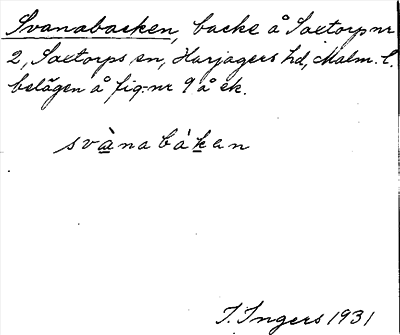 Svanabacken, backe å Saxtorp nr
2, Saxtorps sn, Harjagers hd, Malm. l.
belägen å fig. nr 9 å ek.
svànabákan
I. Ingers 1931